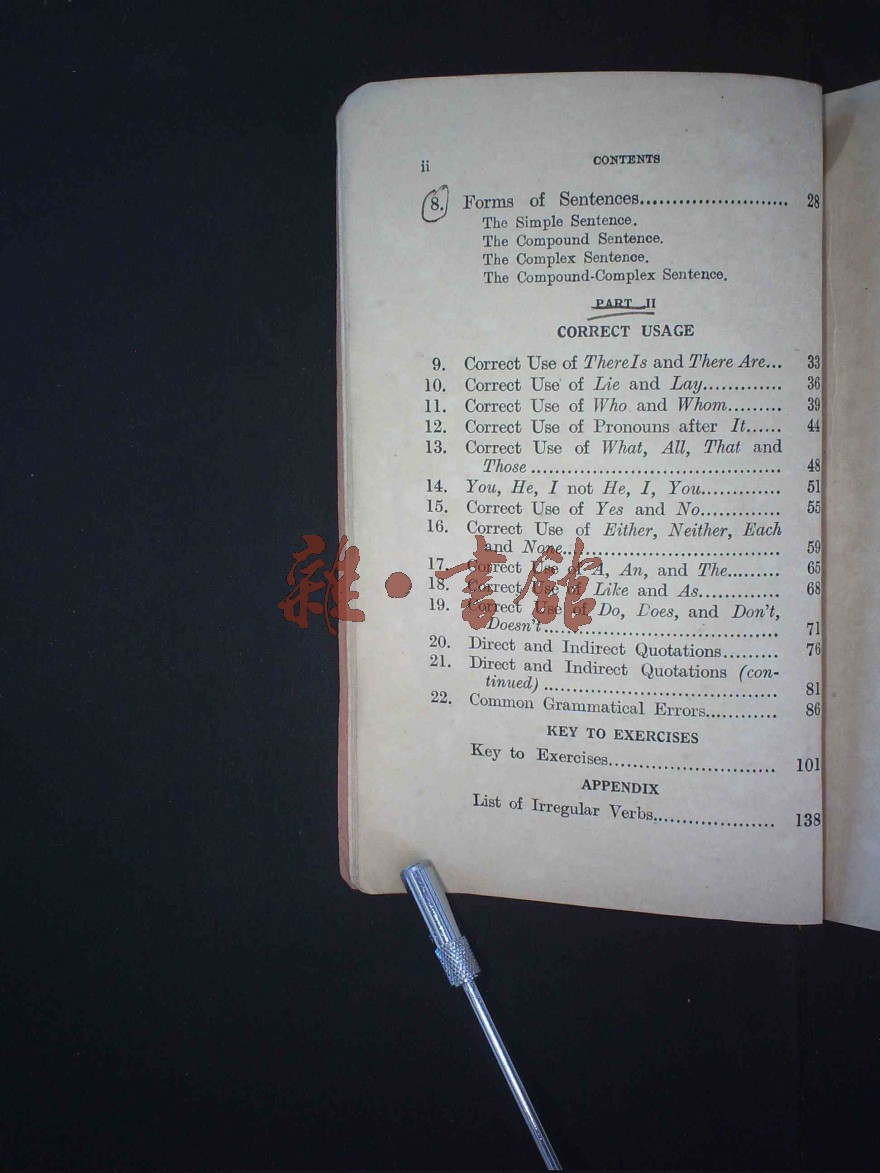 ii CONTENTS
8. Forms of Sentences....................... 28
The Simple Sentence.
The Compound Sentence.
The Complex Sentence.
The Compound-Complex Sentence.
PART II
CORRECT USAGE
9. Correct Use of There Is and There Are... 33
10. Correct Use of Lie and Lay............. 36
11. Correct Use of Who and Whom......... 39
12. Correct Use of Pronouns after It...... 44
13. Correct Use of What, All, That and
Those ...................................... 48
14. You, He, I not He, I, You............. 51
15. Correct Use of Yes and No............. 55
16. Correct Use of Either, Neither, Each
and None................................. 59
17. Correct Use of A, An, and The......... 65
18. Correct Use of Like and As............. 68
19. Correct Use of Do, Does, and Don't,
Doesn't.................................... 71
20. Direct and Indirect Quotations......... 76
21. Direct and Indirect Quotations (con-
tinued) ................................... 81
22. Common Grammatical Errors............ 86
KEY TO EXERCISES
Key to Exercises......................... 101
APPENDIX
List of Irregular Verbs................... 138
雜·書館